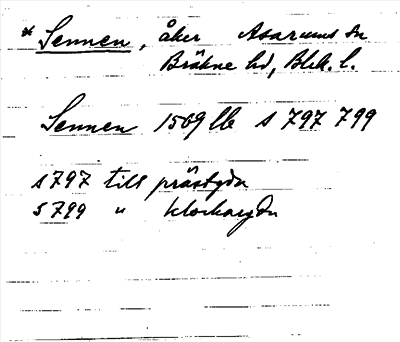 * Sennen, åker Asarums sn
Bräkne hd, Blek. l.
Sennen 1569 lb s 797 799
s 797 till prästgdn
s 799 " klockaregdn